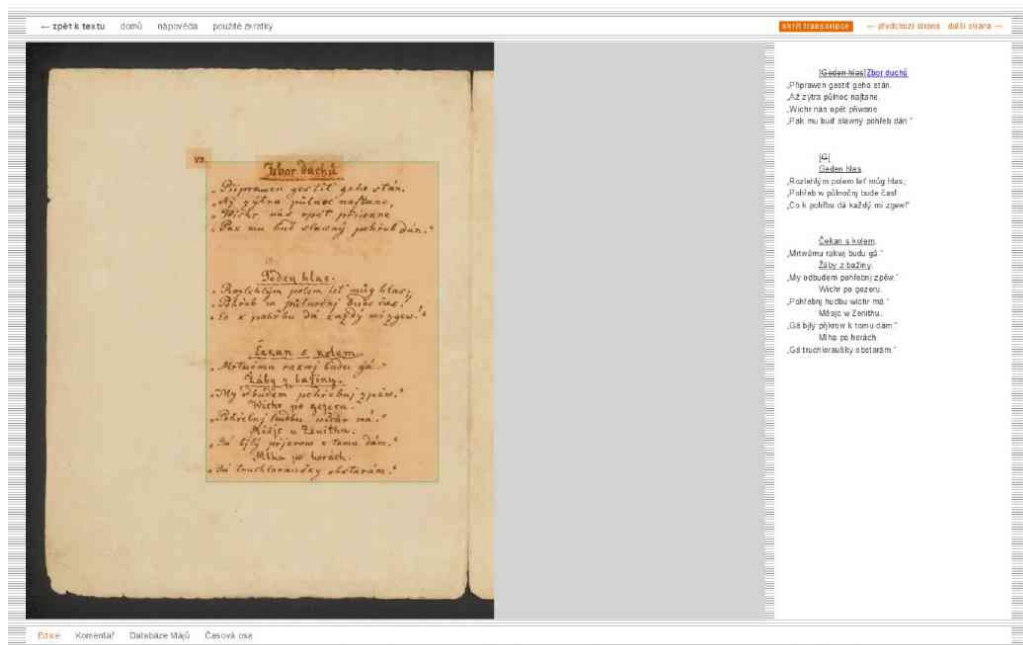 ← zpět k textu domů nápověda použité zkratky
skrýt transkripce ← předchozí strana další strana →
Zbor duchů
„Připrawen gestiť geho stán,
„Až zýtra půlnoc nastane,
„Wichr nás opět přiwane
„Pak mu buď slawný pohřeb dán.“
Geden hlas.
„Rozlehlým polem leť můg hlas;
„Pohřeb w půlnočnj bude čas!
„Co k pohřbu dá každý mi zgew!“
Čekan s kolem.
„Mrtwému rakwj budu gá.“
Žáby z bažiny.
„My odbudem pohřebnj zpěw.“
Wichr po gezeru.
„Pohřebnj hudbu wichr má.“
Měsjc w Zenithu.
„Gá bjlý přjkrow k tomu dám.“
Mlha po horách.
„Gá truchloraušky obstarám.“
[Geden hlas]Zbor duchů
„Připrawen gestiť geho stán.
„Až zýtra půlnoc nastane,
„Wichr nás opět přiwane
„Pak mu buď slawný pohřeb dán.“
[G]
Geden hlas.
„Rozlehlým polem leť můg hlas;
„Pohřeb w půlnočnj bude čas!
„Co k pohřbu dá každý mi zgew!“
Čekan s kolem.
„Mrtwému rakwj budu gá.“
Žáby z bažiny.
„My odbudem pohřebnj zpěw.“
Wichr po gezeru.
„Pohřebnj hudbu wichr má.“
Měsjc w Zenithu.
„Gá bjlý přjkrow k tomu dám.“
Mlha po horách.
„Gá truchloraušky obstarám.“
Edice Komentář Databáze Májů Časová osa